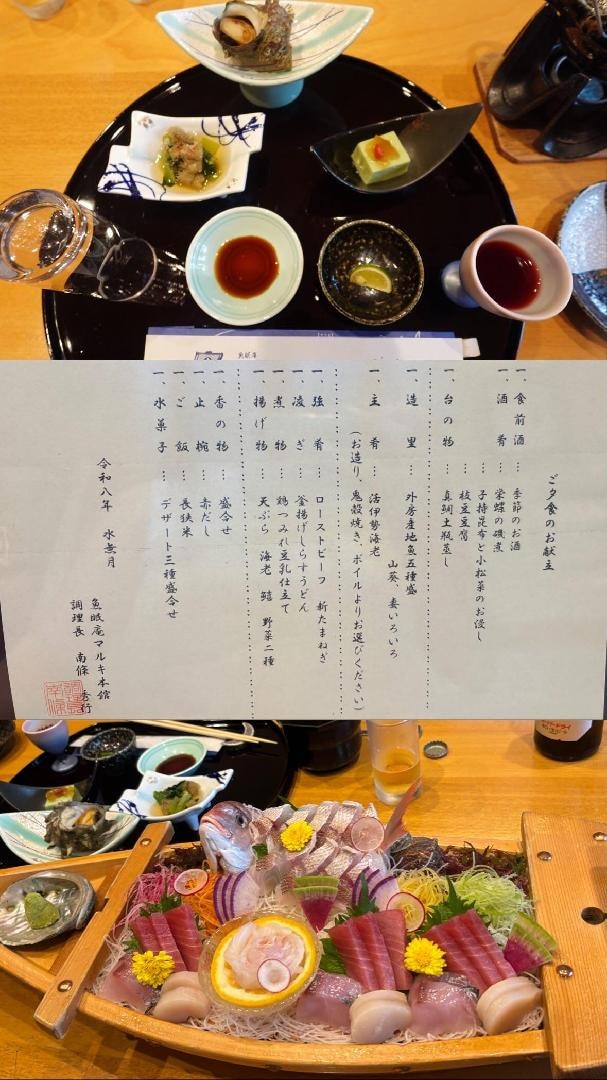 魚眠庵
ご夕食のお献立
一、食前酒 … 季節のお酒
一、酒肴 … 栄螺の磯煮
子持昆布と小松菜のお浸し
枝豆豆富
一、台の物 … 真鯛土瓶蒸し
一、造里 … 外房産地魚五種盛
山葵、妻いろいろ
一、主肴 … 活伊勢海老
(お造り、鬼殻焼き、ボイルよりお選びください)
一、強肴 … ローストビーフ 新たまねぎ
一、凌ぎ … 釜揚げしらすうどん
一、煮物 … 鶏つみれ豆乳仕立て
一、揚げ物 … 天ぷら 海老 鱚 野菜二種
一、香の物 … 盛合せ
一、止椀 … 赤だし
一、ご飯 … 長狭米
一、水菓子 … デザート三種盛合せ
令和八年 水無月
魚眠庵マルキ本館
調理長 南條 秀行